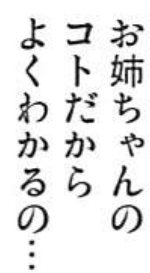 お姉ちゃんの
コトだから
よくわかるの…